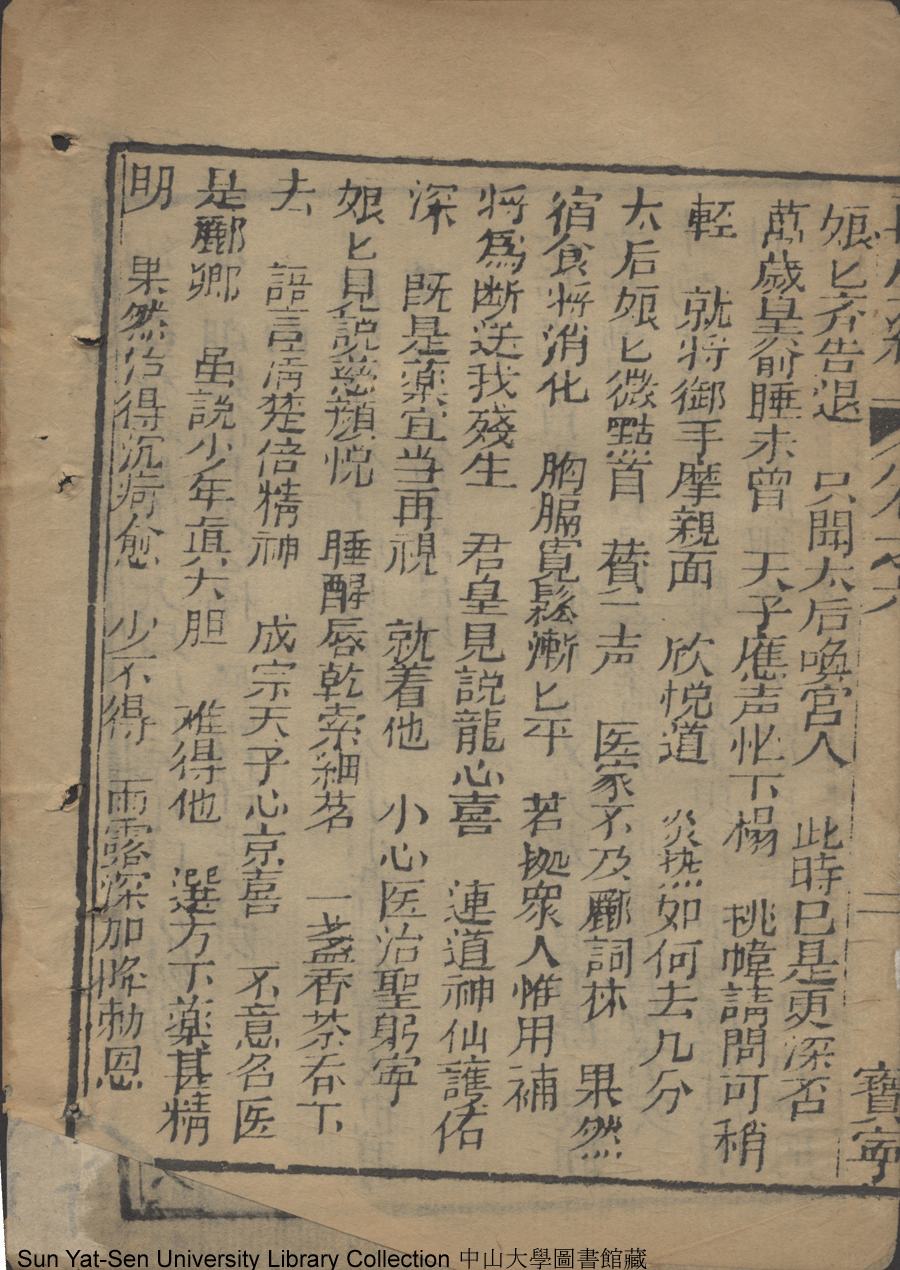 寶寧
娘匕齐告退 只聞太后喚宮人 此時已是更深否
萬歲皇爺睡未曾 天子應声忙下榻 桃幃請問可稍
輕 就将御手摩親面 欣悦道 炎热如何去几分
太后娘匕微點首 賛一声 医家不及酈詞林 果然
宿食将消化 胸膈寬鬆漸匕平 若拠衆人惟用補
将為断送我殘生 君皇見説龍心喜 連道神仙護佑
深 既是薬宜当再視 就着他 小心医治聖躬寧
娘匕見説慈顔悦 睡醒唇乾索細茗 一盞香茶吞下
去 語言清楚倍精神 成宗天子心京喜 不意名医
是酈卿 虽説少年真大胆 难得他 選方下薬甚精
明 果然治得沉疴愈 少不得 雨露深加降勅恩
Sun Yat-Sen University Library Collection 中山大學圖書館藏